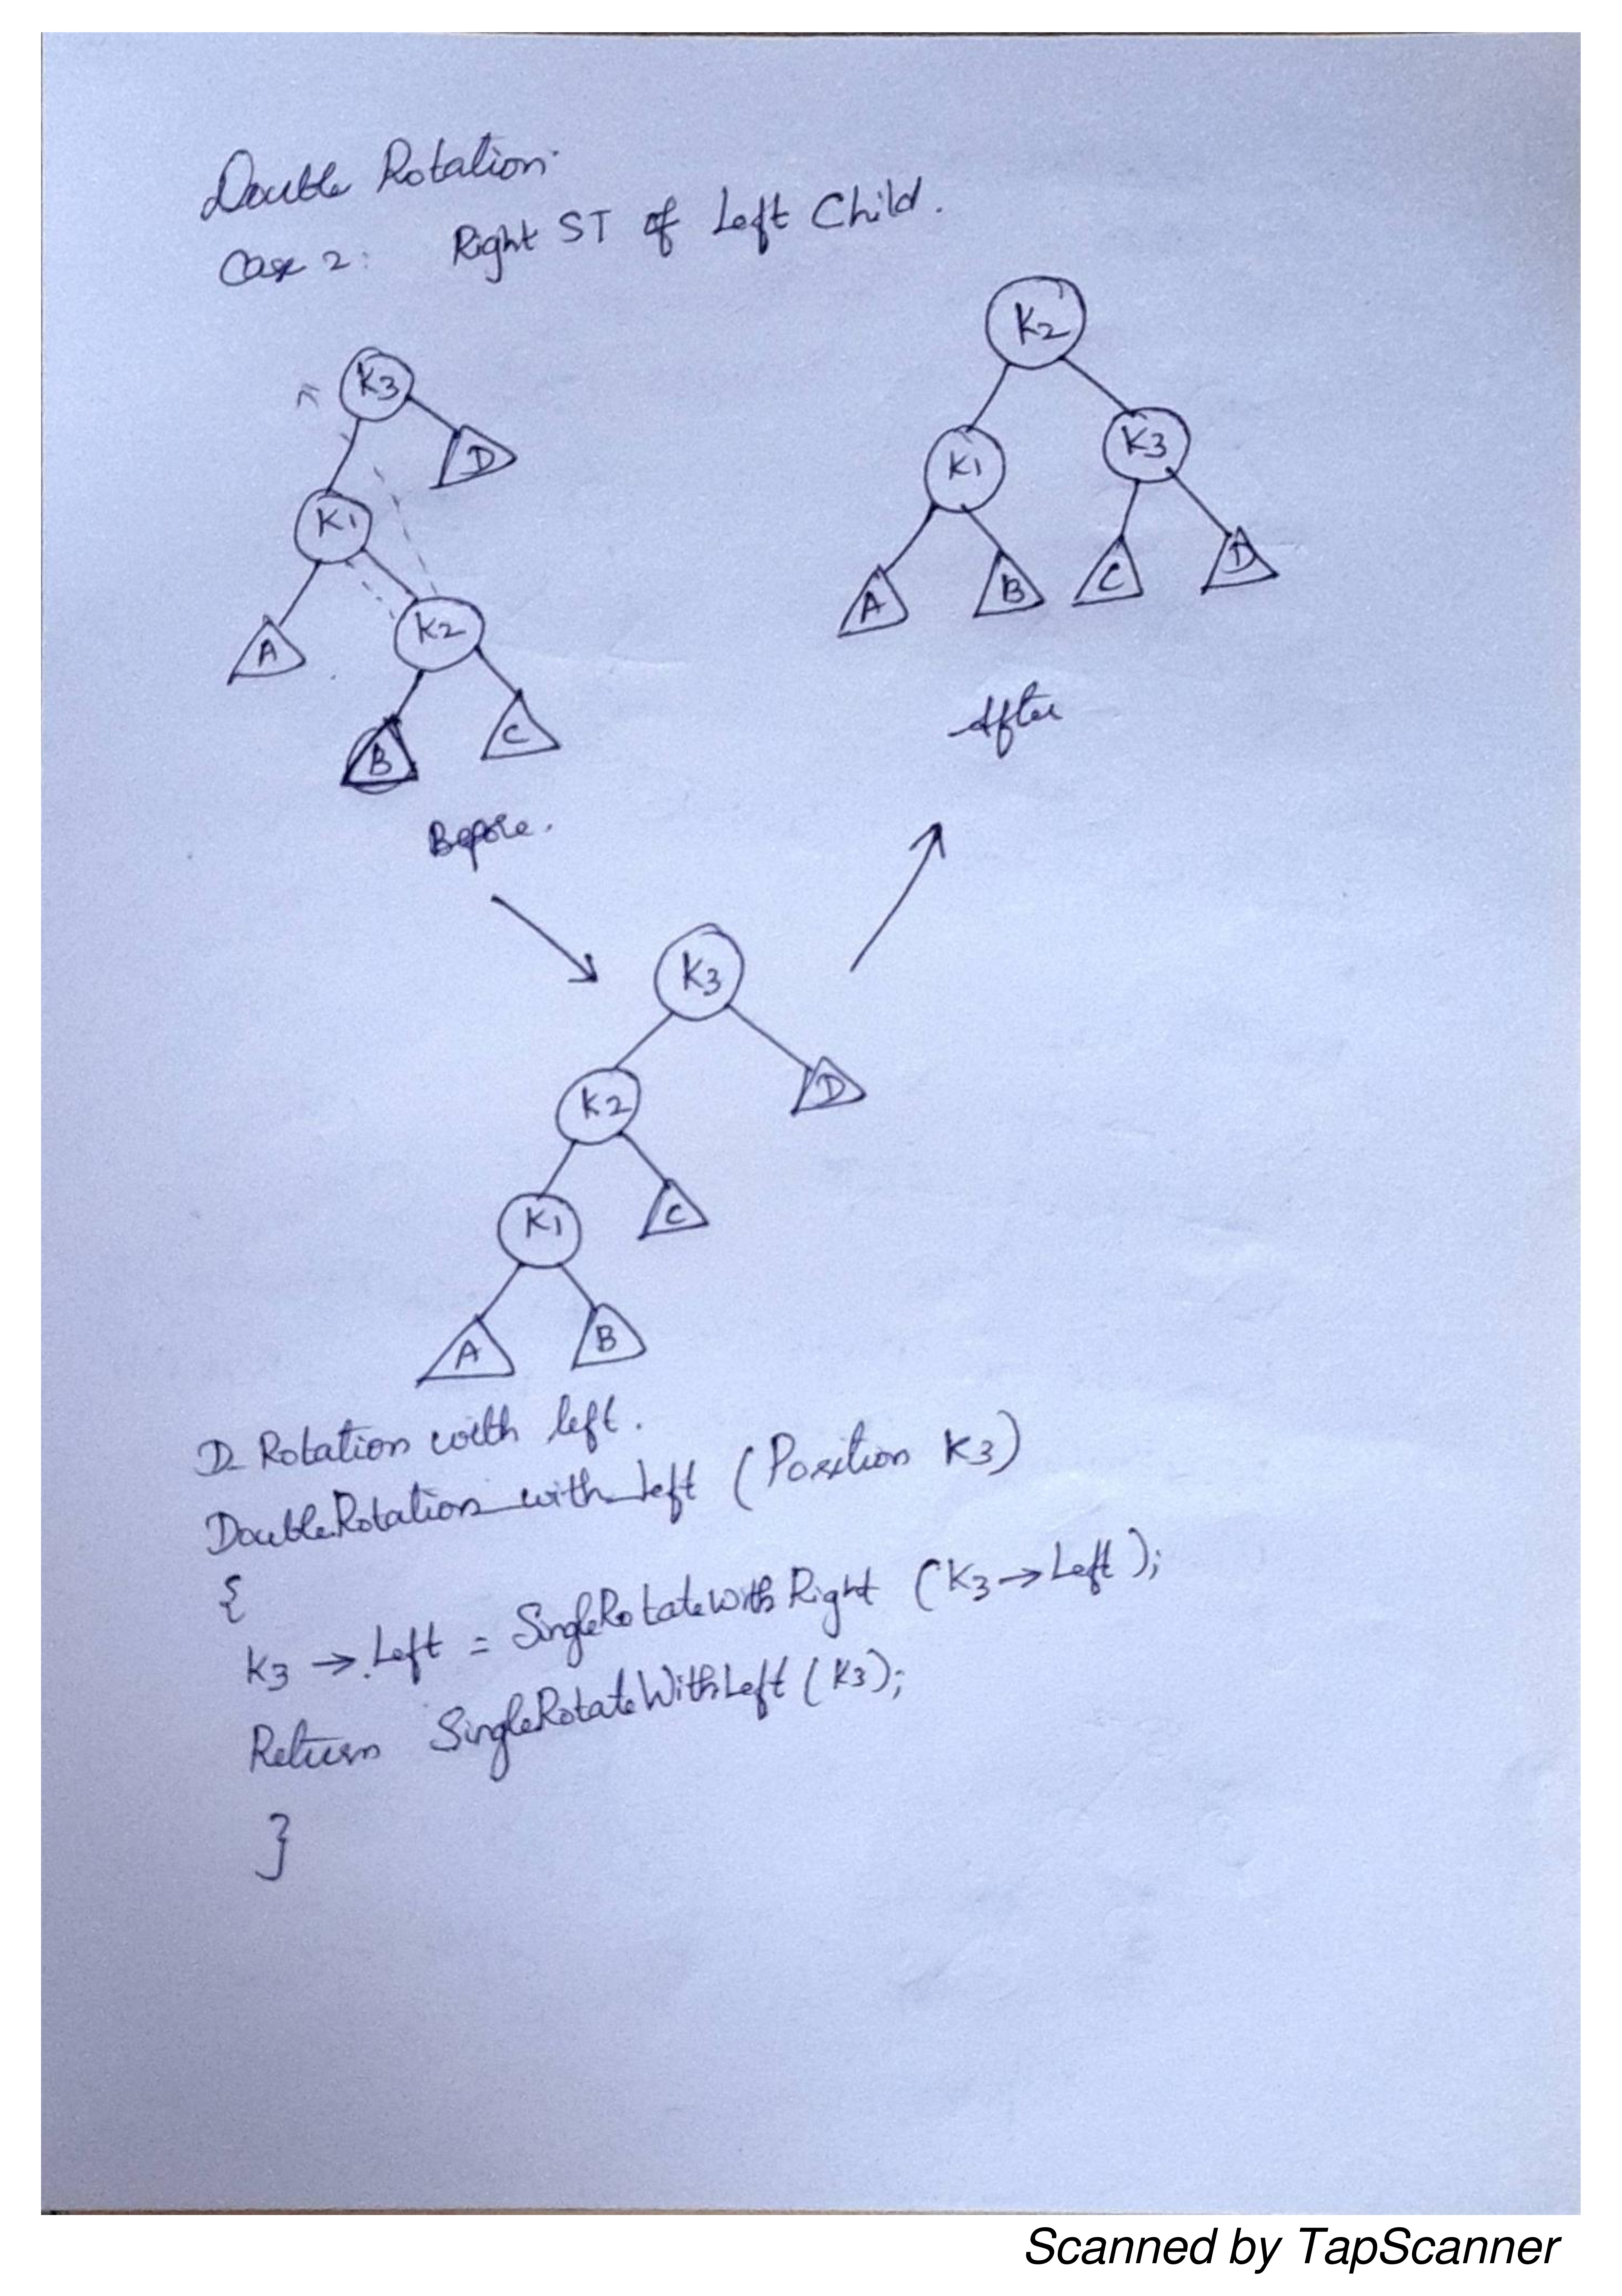 Double Rotation.
Case 2: Right ST of Left Child.
K3
D
K1
A
K2
B
C
Before.
K2
K1
K3
A
B
C
D
After
K3
K2
D
K1
C
A
B
D Rotation with left.
DoubleRotation_with_Left (Position K3)
{
K3 → Left = SingleRotateWithRight (K3 → Left);
Return SingleRotateWithLeft (K3);
}
Scanned by TapScanner